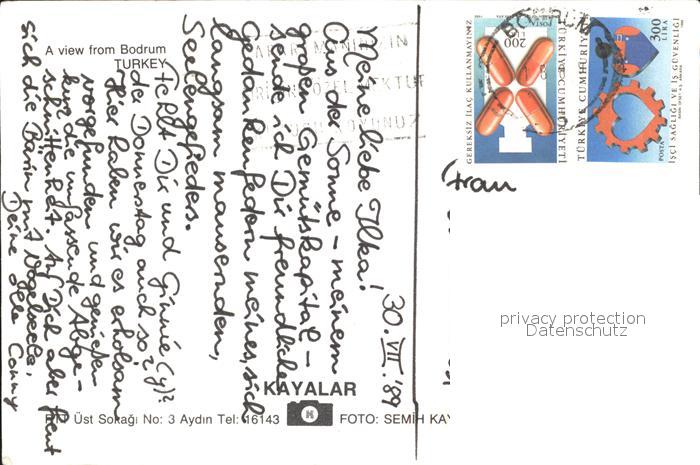 A view from Bodrum
TURKEY
30. VII. '89
Meine liebe Ilka!
Aus der Sonne – meinem
grossen Gemütskapital –
sende ich Dir freundliche
Gedankenfedern meines, sich
langsam mausernden,
Seelengefieders.
Fehlt Dir und Ginnie (y)?
der Donnerstag auch so?
Hier haben wir es erholsam
vorgefunden und genießen
kurz die umfassende Abge-
schnittenheit. Auf Dich aber freut
sich die Bärin mit Vogelseele.
Deine Conny
Frau
KAYALAR
PTT Üst Sokağı No: 3 Aydın Tel: 16143
FOTO: SEMİH KAY
GEREKSİZ İLAÇ KULLANMAYINIZ
200 LİRA
TÜRKİYE CUMHURİYETİ
TÜRKİYE CUMHURİYETİ
300 LİRA
POSTA
İŞÇİ SAĞLIĞI VE İŞ GÜVENLİĞİ
BODRUM
privacy protection
Datenschutz